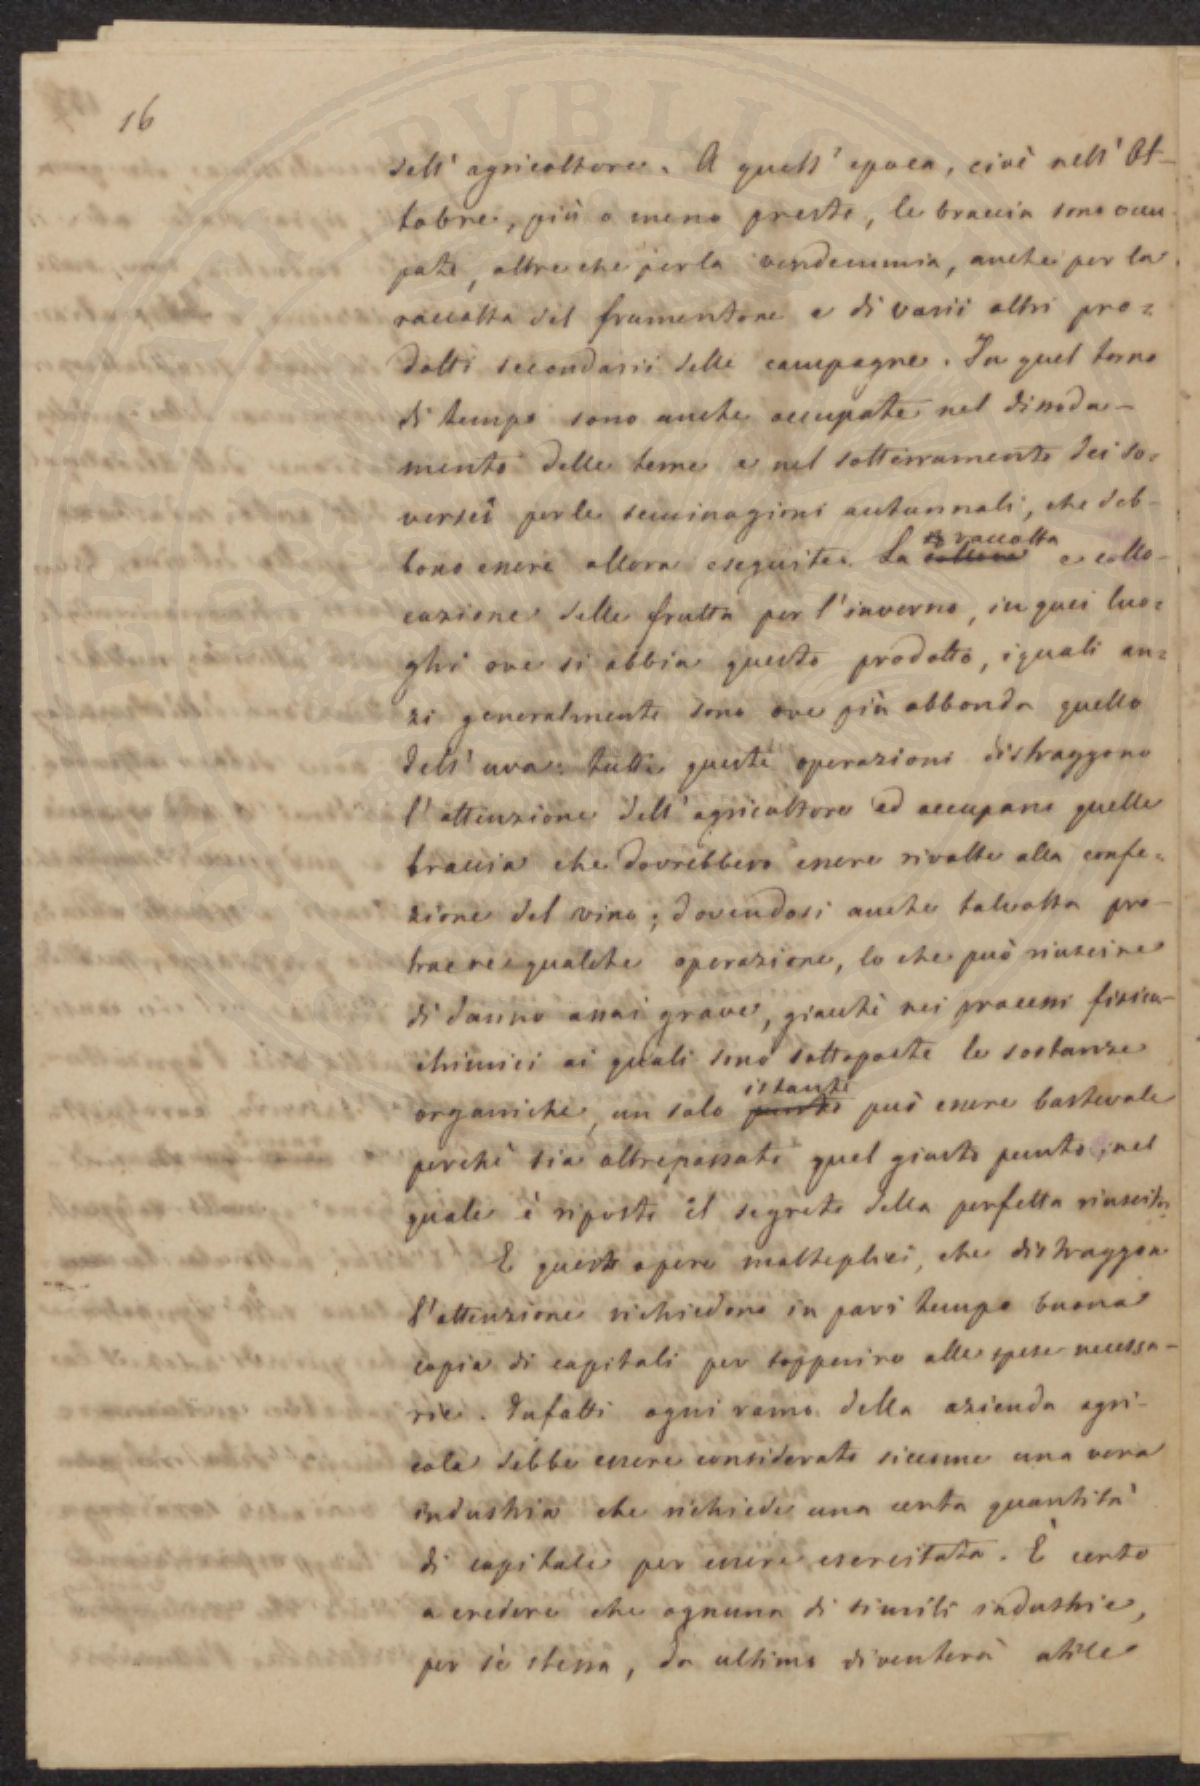 16
dell' agricoltore. A quell' epoca, cioè nell' Ot-
tobre, più o meno presto, le braccia sono occu-
pate, oltre che per la vendemmia, anche per la
raccolta del frumentone e di varii altri pro=
dotti secondarii delle campagne. In quel torno
di tempo sono anche occupate nel dissoda-
mento delle terre e nel sotterramento dei so-
versci per le seminagioni autunnali, che deb-
bono essere allora eseguite. La raccolta e collo-
cazione delle frutta per l'inverno, in quei luo=
ghi ove si abbia questo prodotto, i quali an=
zi generalmente sono ove più abbonda quello
dell' uva: tutte queste operazioni distraggono
l'attenzione dell' agricoltore ed occupano quelle
braccia che dovrebbero essere rivolte alla confe=
zione del vino; dovendosi anche talvolta pro-
trarre qualche operazione, lo che può riuscire
di danno assai grave, giacchè nei processi fisico-
chimici ai quali sono sottoposte le sostanze
organiche, un solo istante può essere bastevole
perchè sia oltrepassato quel giusto punto, nel
quale è riposto il segreto della perfetta riuscita.
E queste opere molteplici, che distraggon
l'attenzione richiedono in pari tempo buona
copia di capitali per sopperire alle spese necessa-
rie. Infatti ogni ramo della azienda agri-
cola debbe essere considerato siccome una vera
industria che richiede una certa quantità
di capitale per essere esercitata. È certo
a credere che ognuna di simili industrie,
per sè stessa, da ultimo diventerà utile